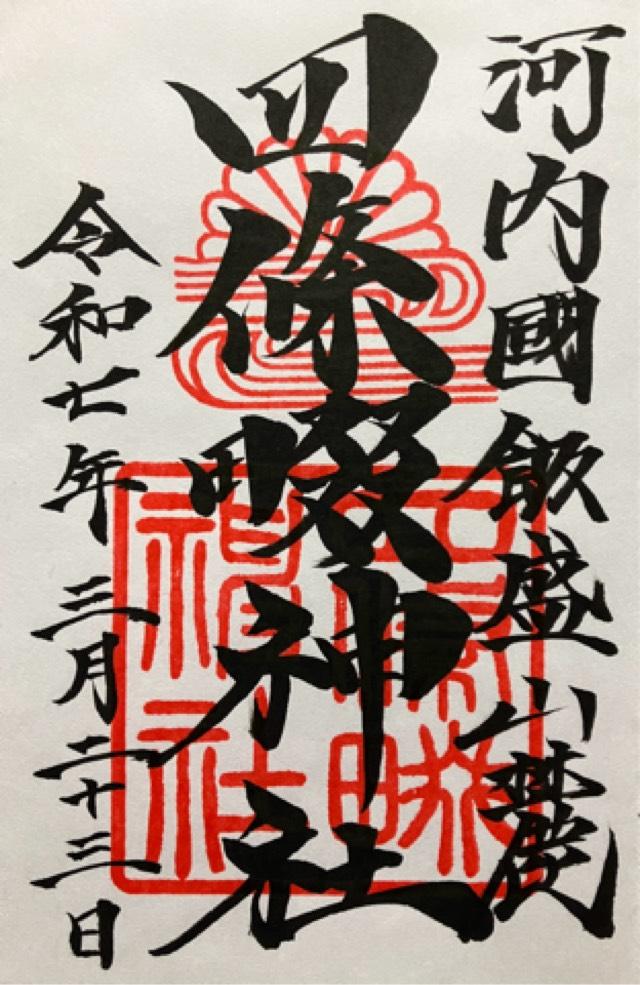 河内國飯盛山麓
四條畷神社
令和七年 三月二十三日